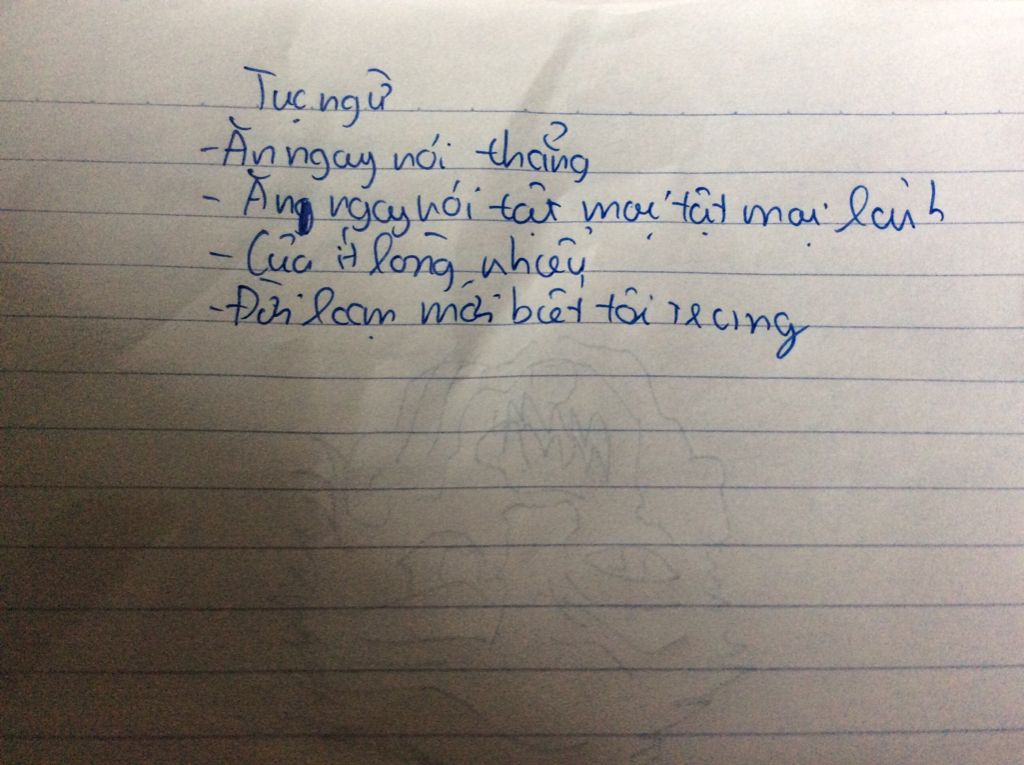 Tục ngữ
- Ăn ngay nói thẳng
- Ăn ngay nói tật mọi tật mọi lành
- Của ít lòng nhiều
- Đời loạn mới biết tôi